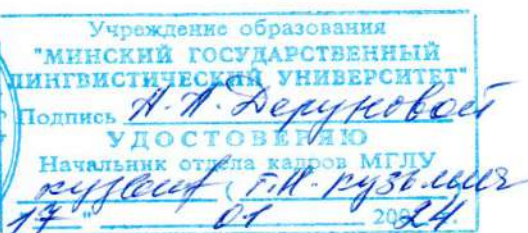 Учреждение образования
"МИНСКИЙ ГОСУДАРСТВЕННЫЙ
ЛИНГВИСТИЧЕСКИЙ УНИВЕРСИТЕТ"
Подпись А.А. Деруновой
УДОСТОВЕРЯЮ
Начальник отдела кадров МГЛУ
(Т.Н. Кузьмич
17 " 01 2024.